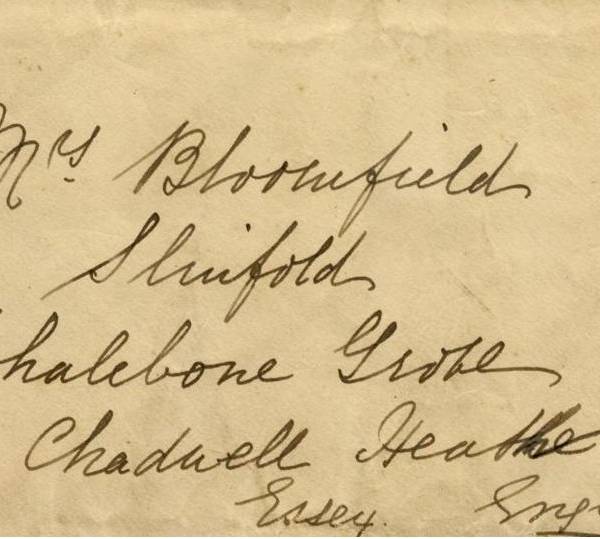 Mrs Bloomfield
Slinfold
halebone Grove
Chadwell Heathe
Essex. Eng